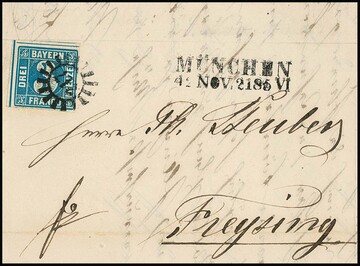 BAYERN
DREI
KREUZER
FRANCO
MÜNCHEN
4 NOV. 2185 VI
Herrn Th. Heuber
fr.
Freysing